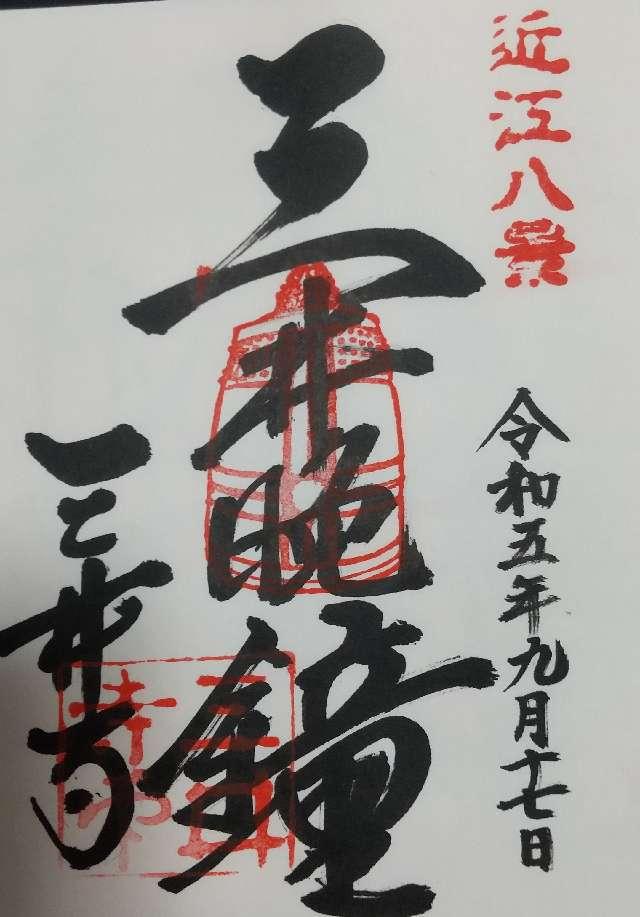 近江八景
令和五年九月十七日
三井晩鐘
三井寺
三井寺印